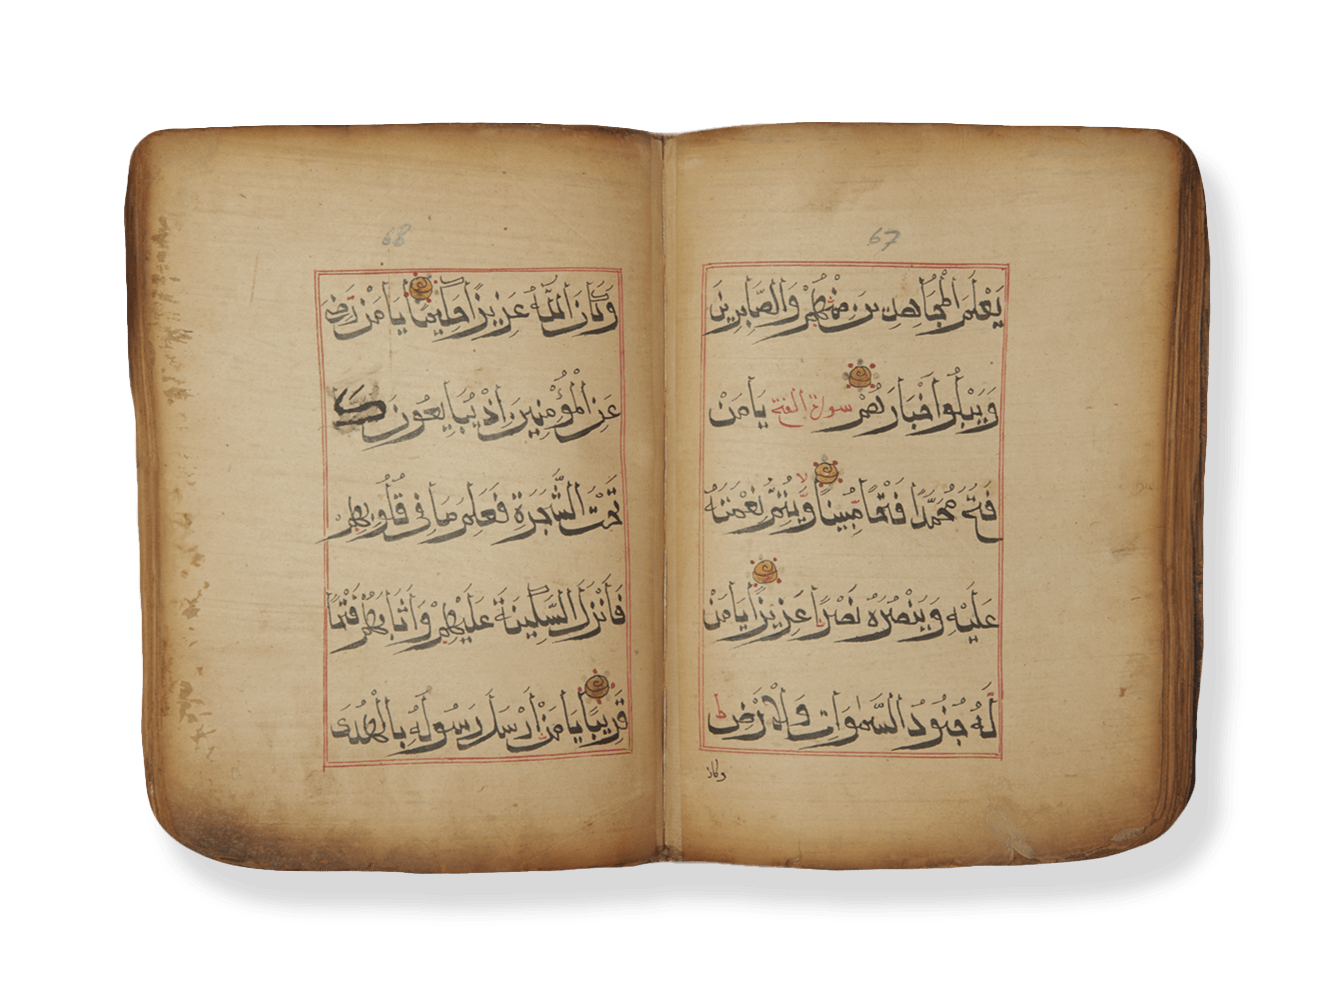 67
يَعْلَمَ الْمُجَاهِدِينَ مِنْهُمْ وَالصَّابِرِينَ
وَيَبْلُوا أَخْبَارَ نَصْرُ سورة الفتح يَا مَنْ
فَتَحَ مُحَمَّدًا فَتْحًا مُبِينًا لا وَّيُتِمُّ نِعْمَتَهُ
عَلَيْهِ وَيَنْصُرُهُ نَصْرًا عَزِيزًا يَا مَنْ
لَهُ جُنُودُ السَّمٰوَاتِ وَالْاَرْضِ ط
وكان
68
وَكَانَ اللّٰهُ عَزِيزًا حَكِيمًا يَا مَنْ رَضِيَ
عَنِ الْمُؤْمِنِينَ اِذْ يُبَايِعُونَكَ
تَحْتَ الشَّجَرَةِ فَعَلِمَ مَا فِي قُلُوبِهِمْ
فَأَنْزَلَ السَّكِينَةَ عَلَيْهِمْ وَأَثَابَهُمْ فَتْحًا
قَرِيبًا يَا مَنْ أَرْسَلَ رَسُولَهُ بِالْهُدَى